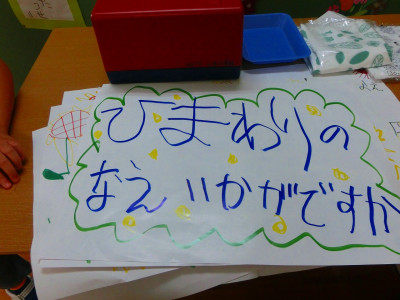 ひまわりの
なえ いかがですか